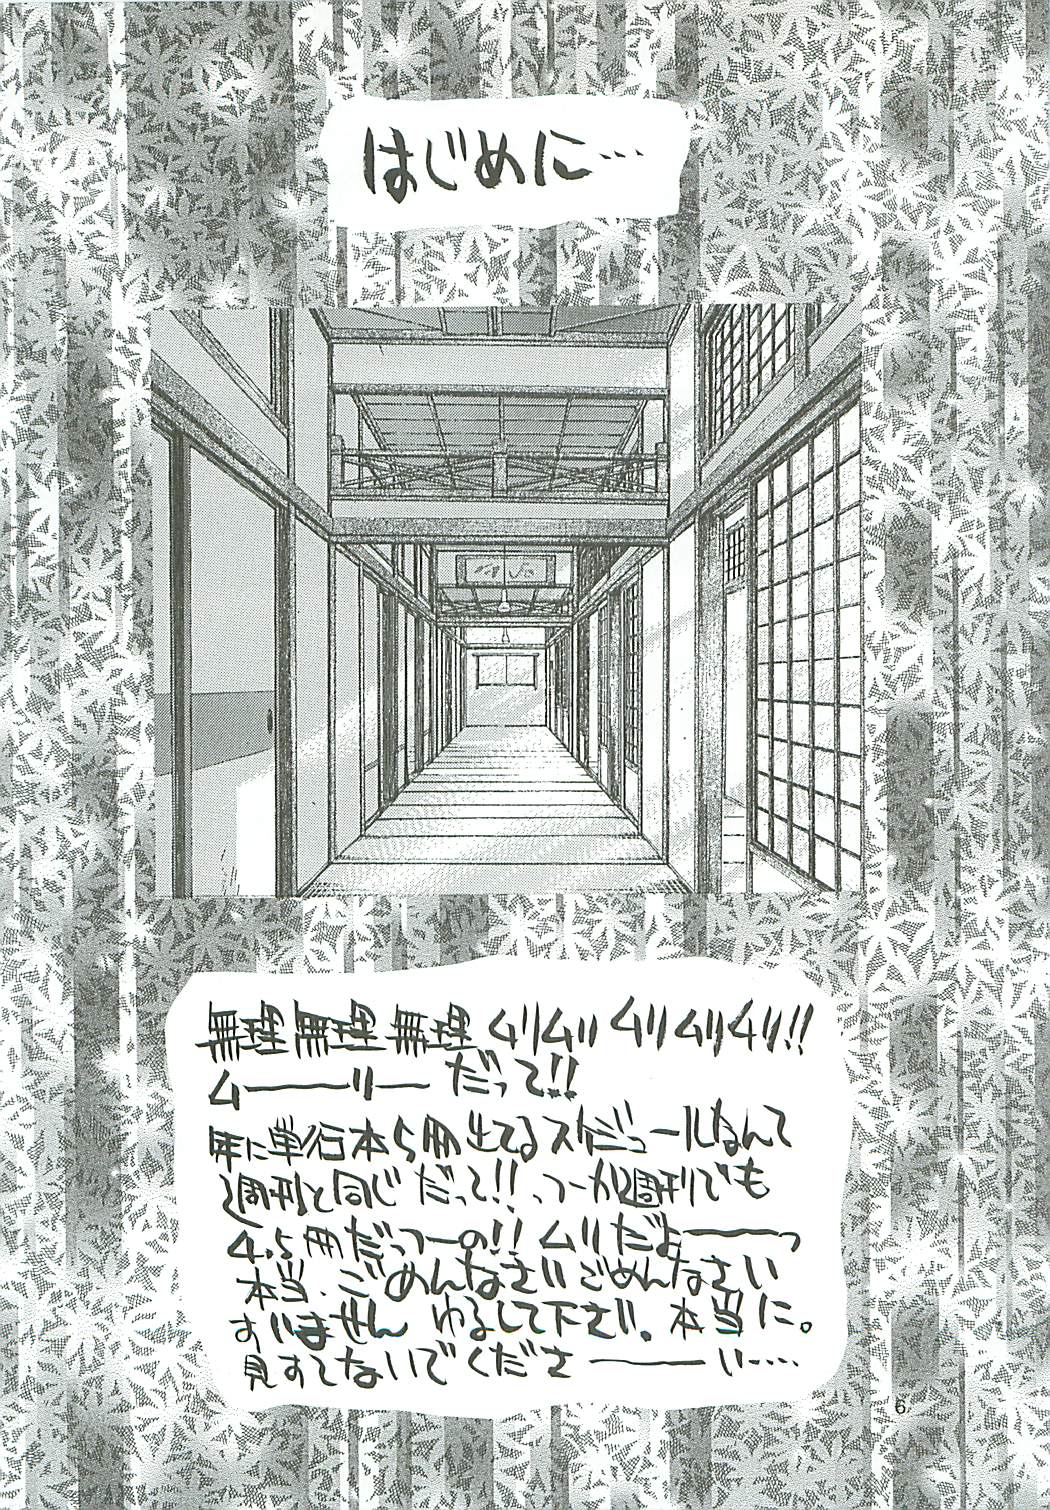 はじめに…
無理無理無理ムリムリムリムリムリ!!
ムーーリーだって!!
年に単行本5冊出てるスケジュールなんて
週刊と同じだって!!つーか週刊でも
4.5冊だっつーの!!ムリだよーーっ
本当、ごめんなさいごめんなさい
すいませんゆるして下さい。本当に。
見すてないでくださーーい…
6